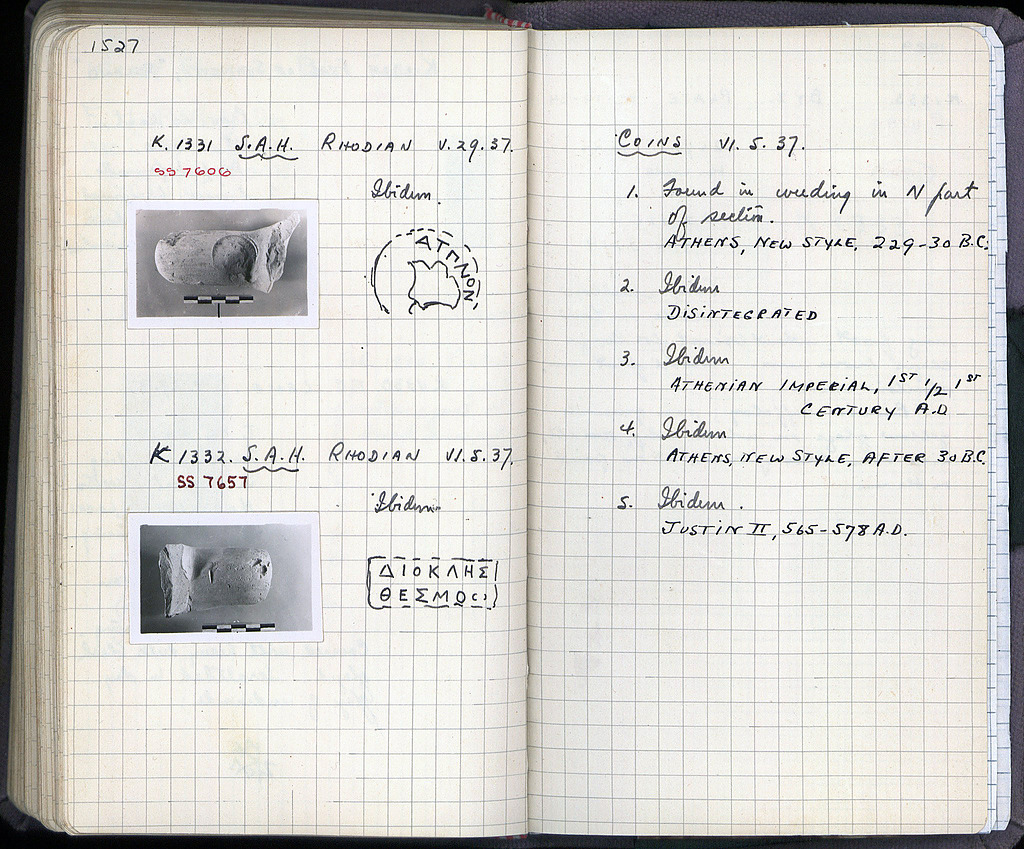 1527
K. 1331 S.A.H. RHODIAN V.29.37.
SS 7606
Ibidem.
ΔΤΠΝΟΝ
K 1332. S.A.H. RHODIAN VI.5.37.
SS 7657
Ibidem
ΔΙΟΚΛΗΣ
ΘΕΣΜΟ
COINS VI.5.37.
1. Found in weeding in N part
of section.
ATHENS, NEW STYLE, 229-30 B.C.
2. Ibidem
DISINTEGRATED
3. Ibidem
ATHENIAN IMPERIAL, 1ST 1/2 1ST
CENTURY A.D
4. Ibidem
ATHENS, NEW STYLE, AFTER 30 B.C.
5. Ibidem.
JUSTIN II, 565-578 A.D.